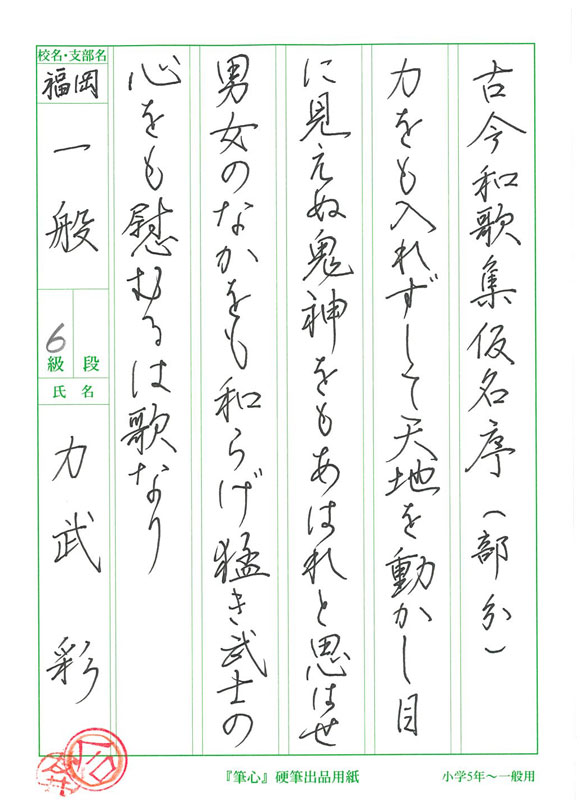 古今和歌集仮名序(部分)
力をも入れずして天地を動かし目
に見えぬ鬼神をもあはれと思はせ
男女のなかをも和らげ猛き武士の
心をも慰むるは歌なり
校名・支部名
福岡
一般
6
級 段
氏名
力武 彩
『筆心』硬筆出品用紙
小学5年〜一般用